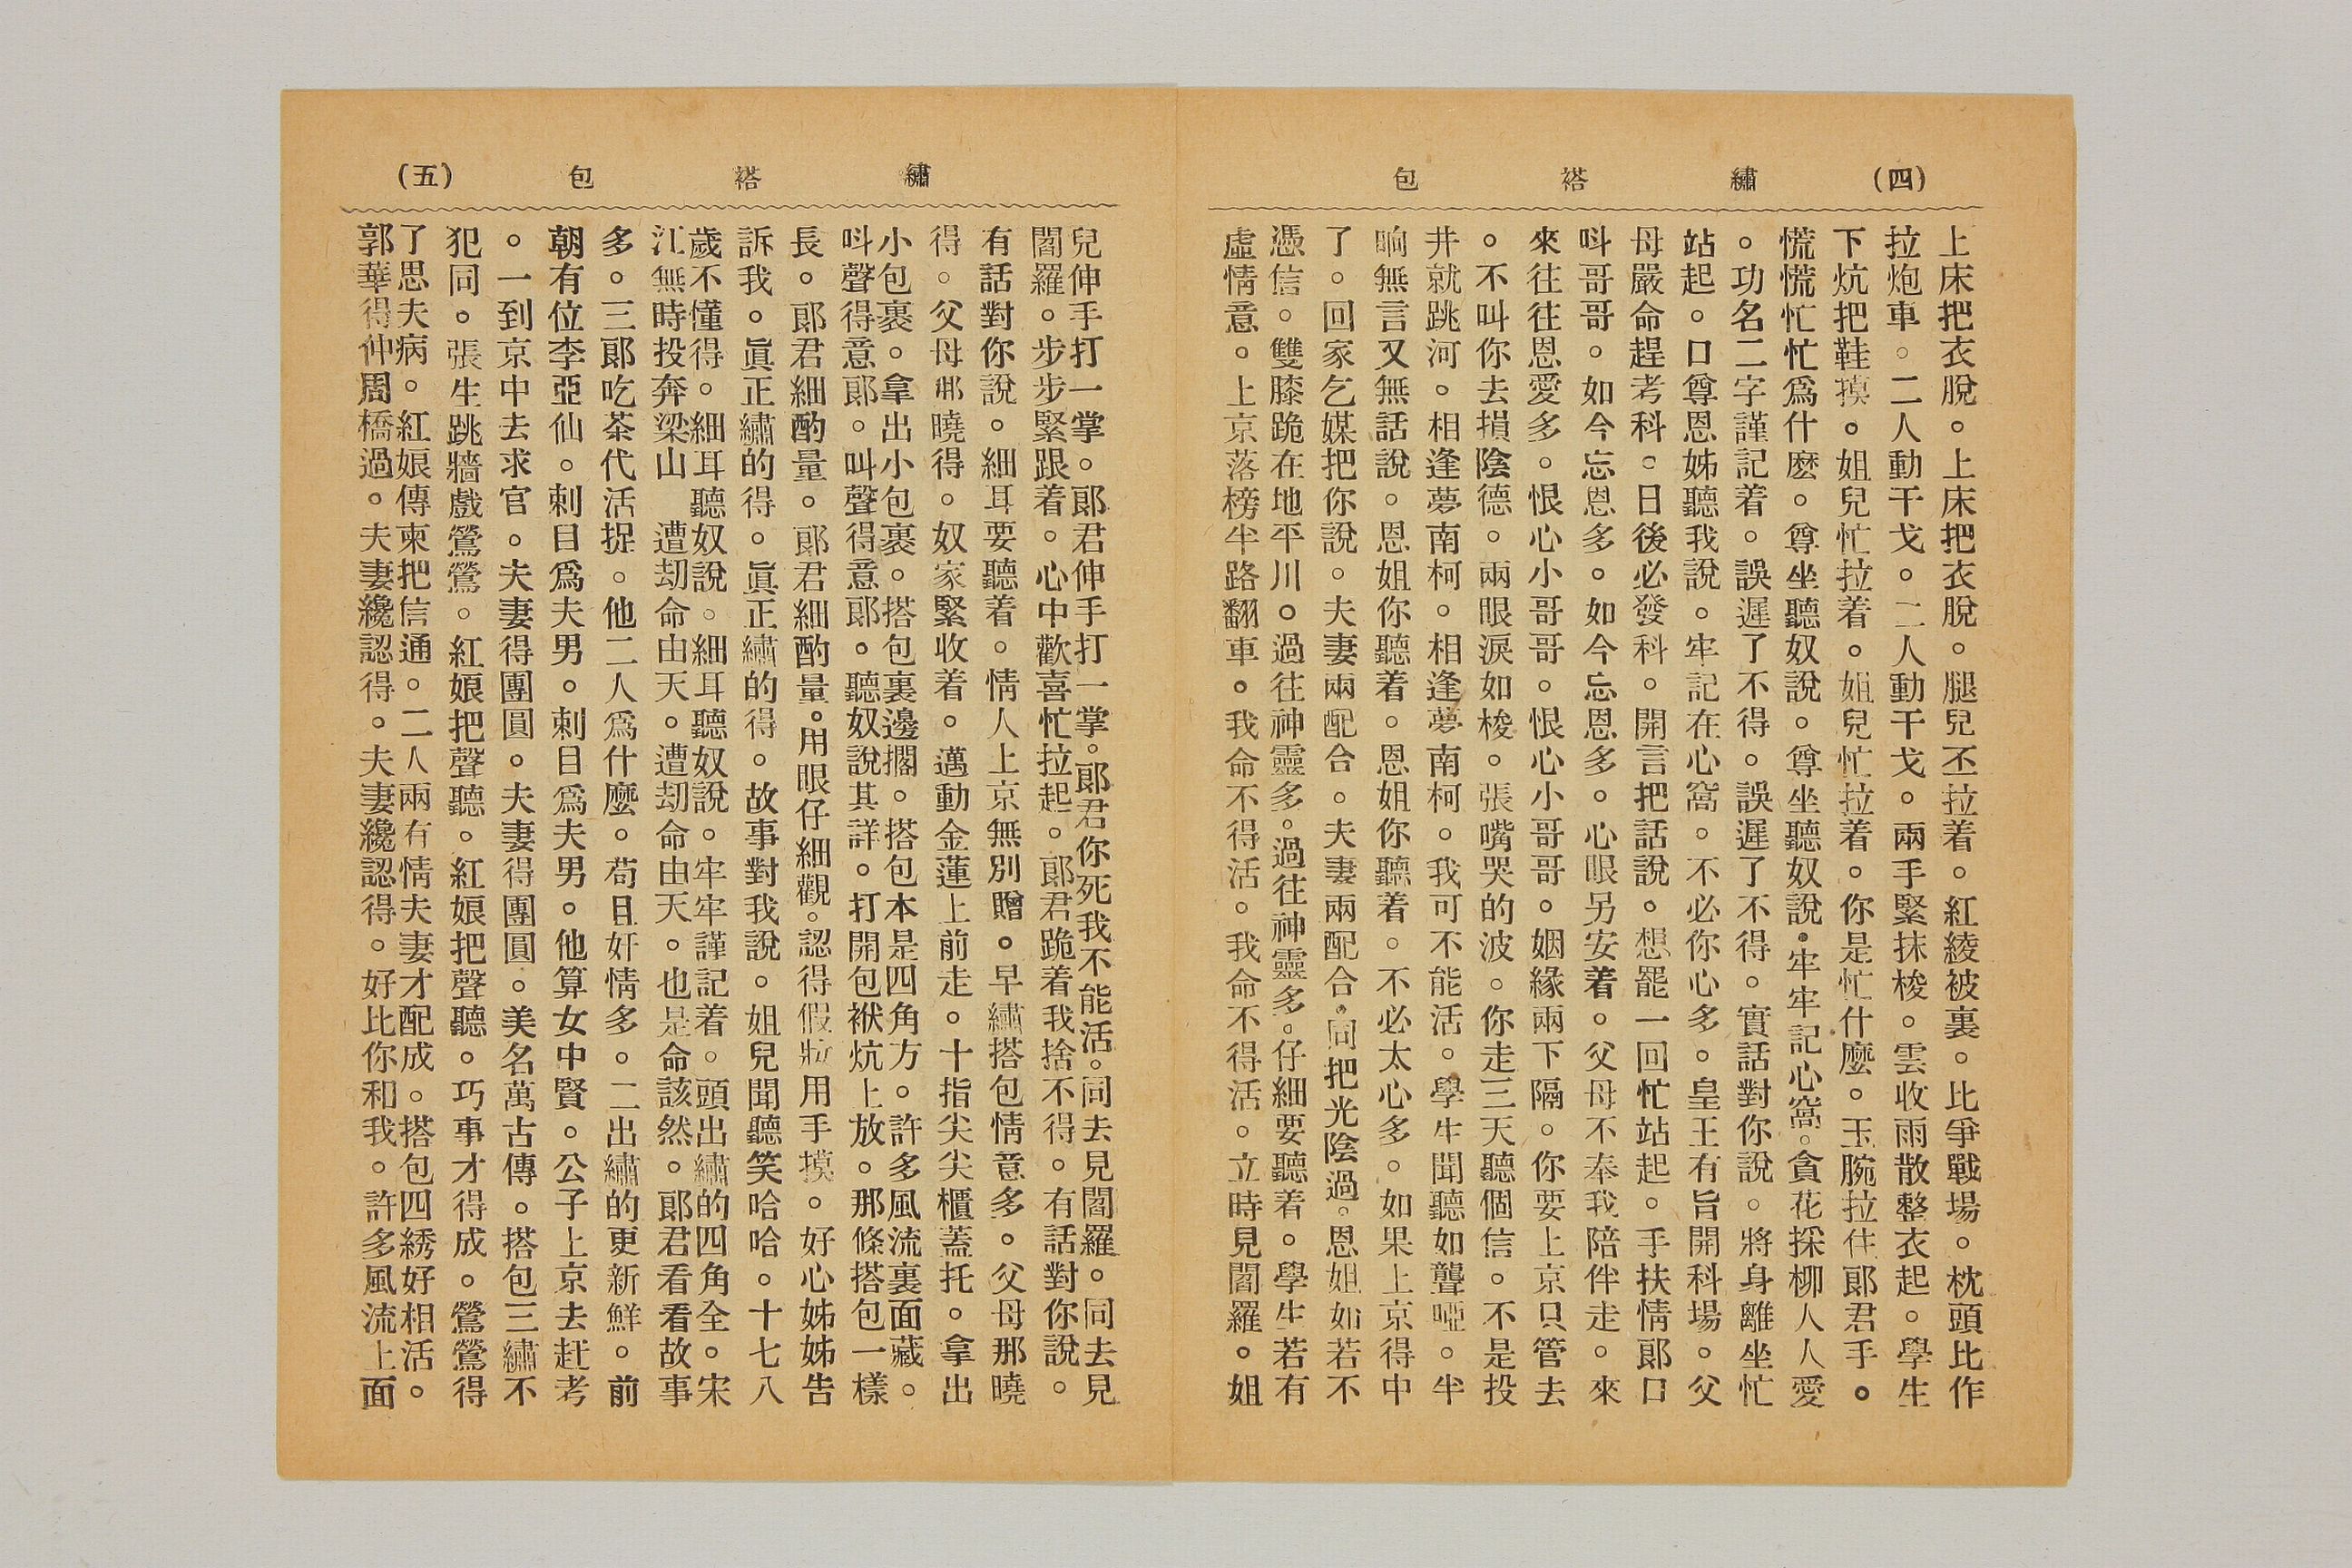 (四) 繡 褡 包
上床把衣脫。上床把衣脫。腿兒丕拉着。紅綾被裏。比爭戰場。枕頭比作
拉炮車。二人動干戈。二人動干戈。兩手緊抹梭。雲收雨散整衣起。學生
下炕把鞋摸。姐兒忙拉着。姐兒忙拉着。你是忙什麼。玉腕拉住郎君手。
慌慌忙忙爲什麼。尊坐聽奴說。尊坐聽奴說。牢牢記心窩。貪花採柳人人愛
。功名二字謹記着。誤遲了不得。誤遲了不得。實話對你說。將身離坐忙
站起。口尊恩姊聽我說。牢記在心窩。不必你心多。皇王有旨開科場。父
母嚴命趕考科。日後必發科。開言把話說。想罷一回忙站起。手扶情郎口
呌哥哥。如今忘恩多。如今忘恩多。心眼另安着。父母不奉我陪伴走。來
來往往恩愛多。恨心小哥哥。恨心小哥哥。姻緣兩下隔。你要上京只管去
。不叫你去損陰德。兩眼淚如梭。張嘴哭的波。你走三天聽個信。不是投
井就跳河。相逢夢南柯。相逢夢南柯。我可不能活。學生聞聽如聾啞。半
晌無言又無話說。恩姐你聽着。恩姐你聽着。不必太心多。如果上京得中
了。回家乞媒把你說。夫妻兩配合。夫妻兩配合。同把光陰過。恩姐如若不
憑信。雙膝跪在地平川。過往神靈多。過往神靈多。仔細要聽着。學生若有
虛情意。上京落榜半路翻車。我命不得活。我命不得活。立時見閻羅。姐
繡 褡 包 (五)
兒伸手打一掌。郎君伸手打一掌。郎君你死我不能活。同去見閻羅。同去見
閻羅。步步緊跟着。心中歡喜忙拉起。郎君跪着我捨不得。有話對你說。
有話對你說。細耳要聽着。情人上京無別贈。早繡搭包情意多。父母那曉
得。父母那曉得。奴家緊收着。邁動金蓮上前走。十指尖尖櫃蓋托。拿出
小包裹。拿出小包裹。搭包裏邊擱。搭包本是四角方。許多風流裏面藏。
呌聲得意郎。叫聲得意郎。聽奴說其詳。打開包袱炕上放。那條搭包一樣
長。郎君細酌量。郎君細酌量。用眼仔細觀。認得假粧用手摸。好心姊姊告
訴我。眞正繡的得。眞正繡的得。故事對我說。姐兒聞聽笑哈哈。十七八
歲不懂得。細耳聽奴說。細耳聽奴說。牢牢謹記着。頭出繡的四角全。宋
江無時投奔梁山 遭刧命由天。遭刧命由天。也是命該然。郎君看看故事
多。三郎吃茶代活捉。他二人爲什麼。苟且奸情多。二出繡的更新鮮。前
朝有位李亞仙。刺目爲夫男。刺目爲夫男。他算女中賢。公子上京去赶考
。一到京中去求官。夫妻得團圓。夫妻得團圓。美名萬古傳。搭包三繡不
犯同。張生跳牆戲鶯鶯。紅娘把聲聽。紅娘把聲聽。巧事才得成。鶯鶯得
了思夫病。紅娘傳柬把信通。二人兩有情夫妻才配成。搭包四綉好相活。
郭華得仲周橋過。夫妻纔認得。夫妻纔認得。好比你和我。許多風流上面